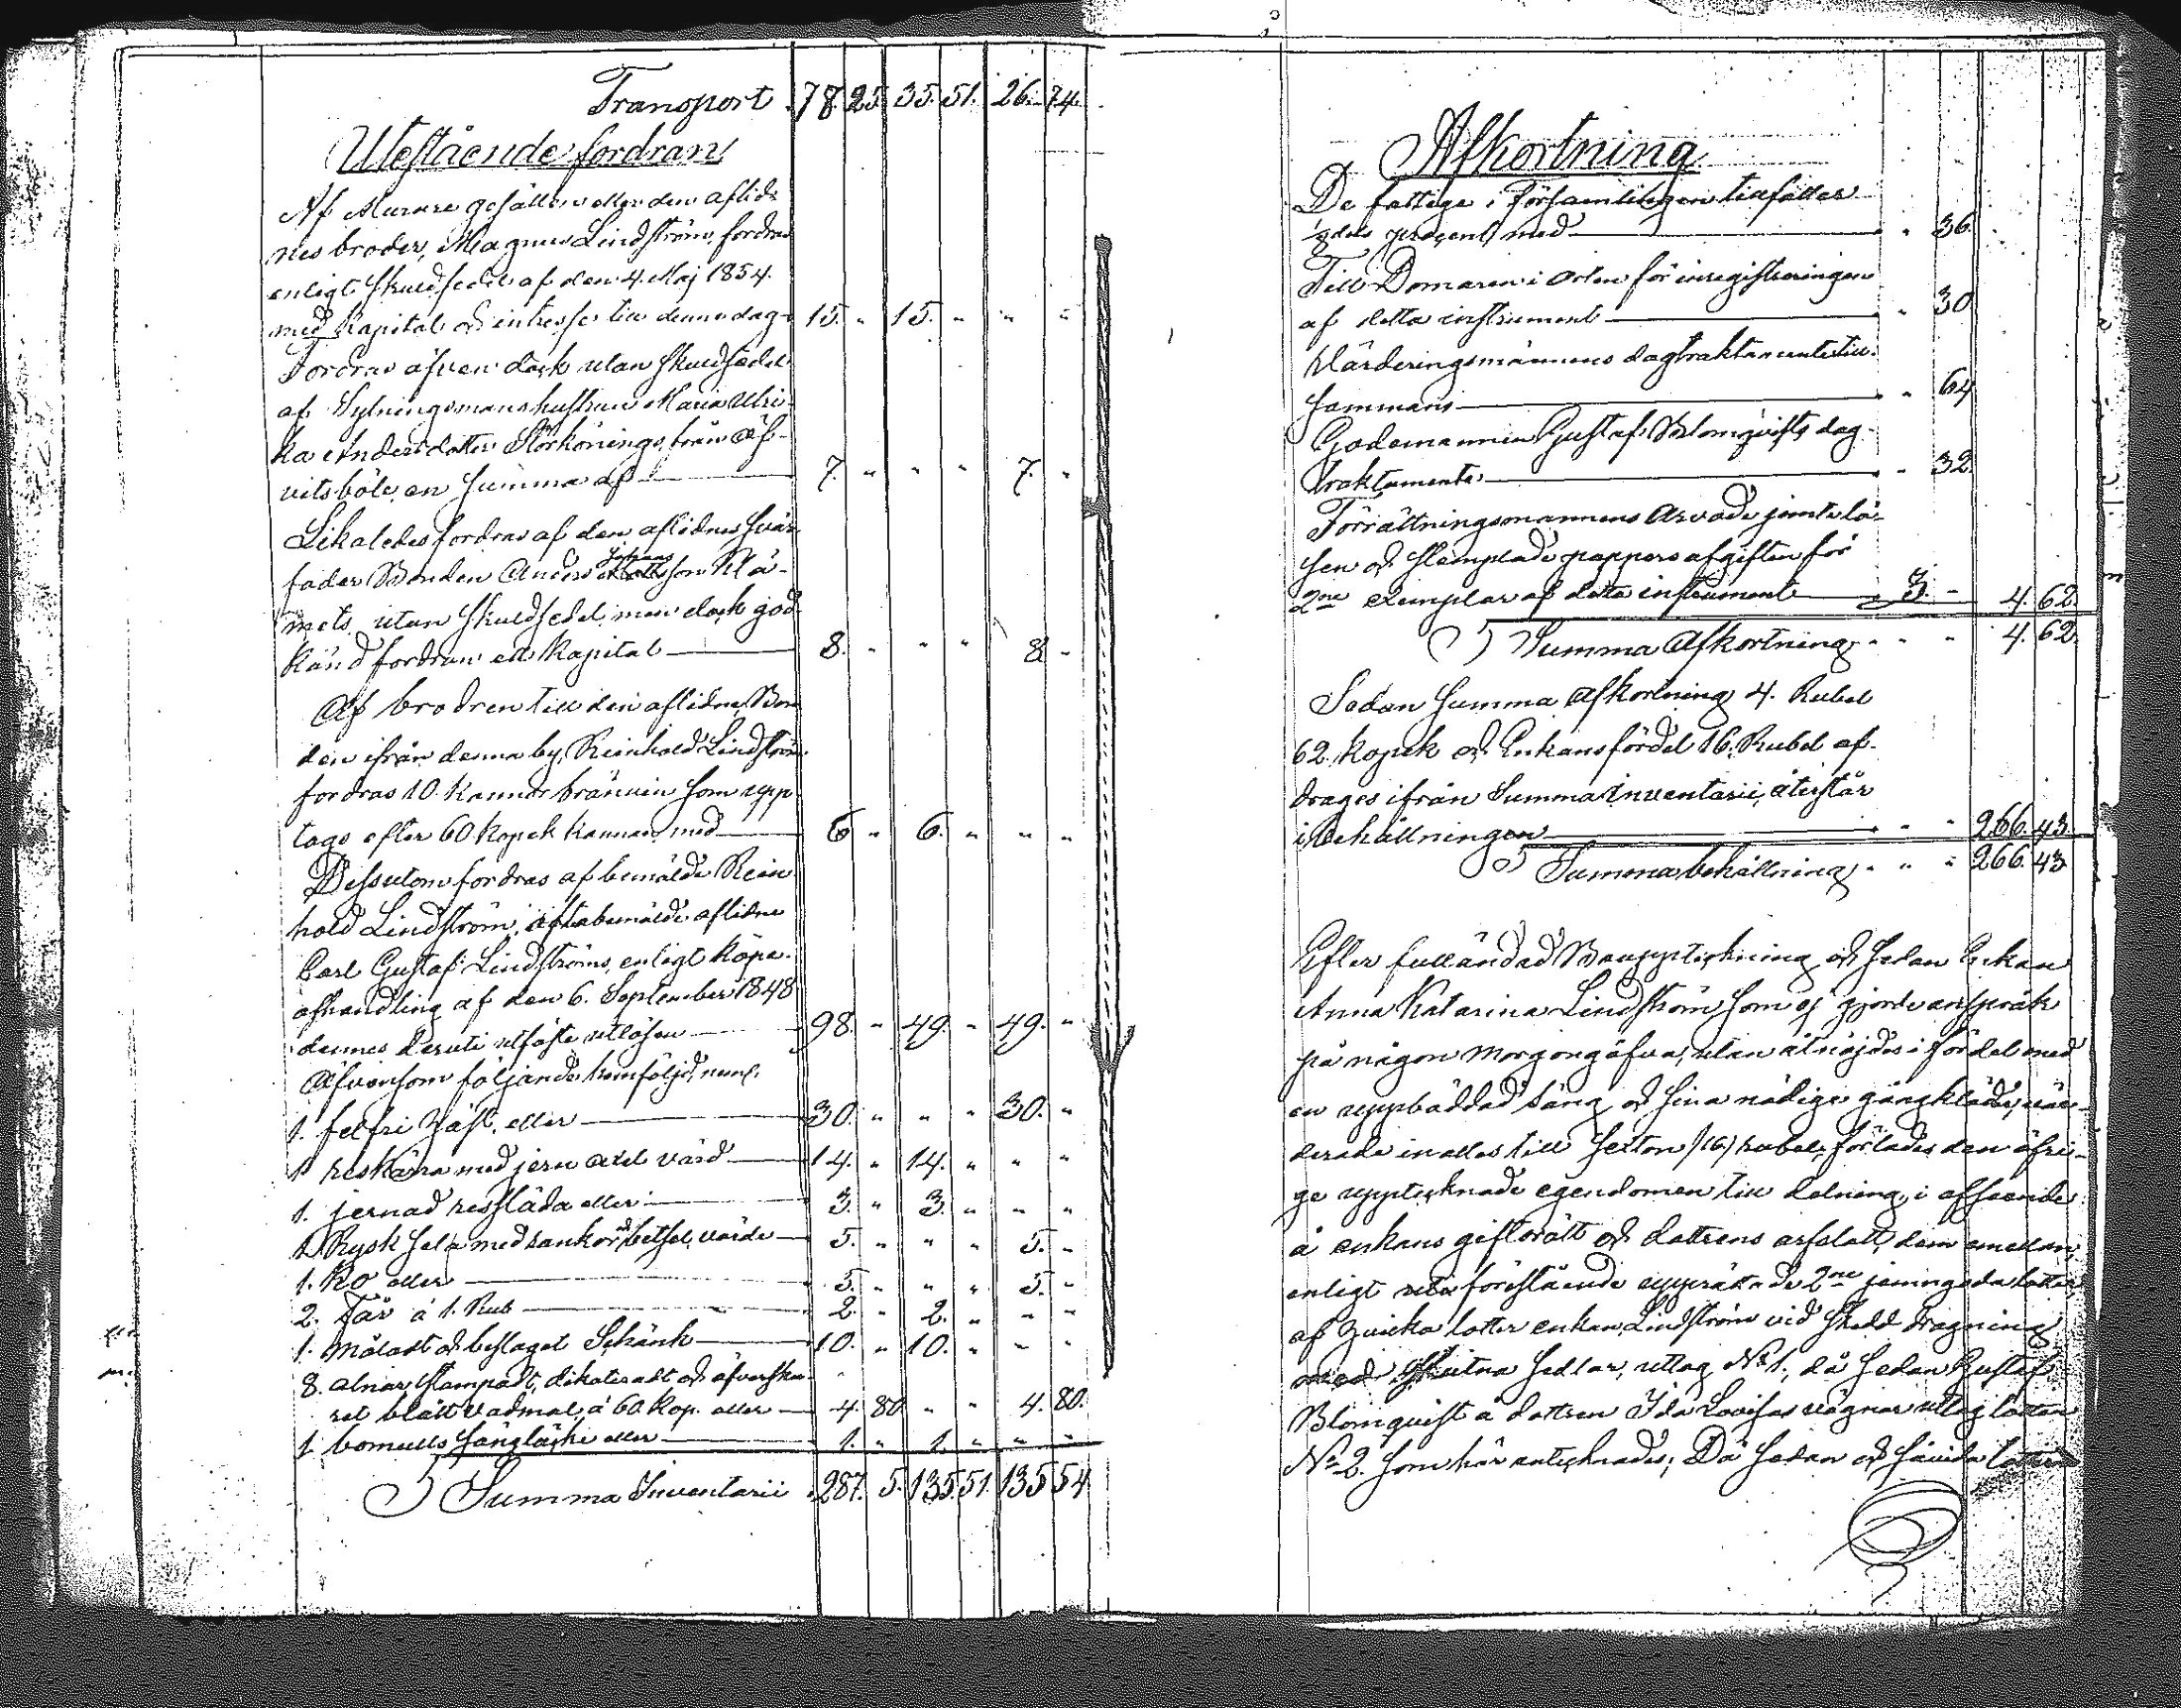 Transport 78. 25. 35. 51. 26. 74.
Utestående fordran
Af Murare gesällen eller den aflid-
nes broder, Magnus Lindström, fordras
enligt skuldsedel af den 4. Maj 1854.
med Kapital och intresse till denna dag 15. " 15. " " "
Fordras äfven dock utan skuldsedel
af Sytningsmanshustrun Maria Ulri-
ka Andersdotter Storkönings från
vitsböle en summa af 7. " " " 7. "
Likaledes fordras af den aflidnes svär-
fader Bonden Anders Johansson
mets utan skuldsedel, men dock god-
känd fordran ett Kapital 8. " " " 8. "
Af brodren till den aflidne, Bon-
den ifrån denna by, Reinhold Lindström
fordras 10. Kannor bränvin som upp-
tags efter 60 Kopek kannan med 6. " 6. " " "
Dessutom fordras af bemälde Rein-
hold Lindström, oftabemälde aflidne
Carl Gustaf Lindströms, enligt Köpe-
afhandling af den 6. September 1848
dennes deruti utfäste utlösen 98. " 49. " 49. "
Äfvensom följande hemföljd, neml.
1. felfri häst, eller 30. " " " 30. "
1 reskärra med jern axel värd 14. " 14. " " "
1. jernad ressläda eller 3. " 3. " " "
1. Rysk sela med rankor o betsel, värde 5. " " " 5. "
1. Ko eller 5. " " " 5. "
2. Får á 1. Rub 2. " 2. " " "
1. måladt och beslaget Schänk 10. " 10. " " "
8. alnar stampadt, dikateradt och öfversku-
ret blått vadmal, á 60 Kop. eller 4. 80 " " 4. 80.
1. bomulls sängtäcke eller 1. " 1. " " "
Summa Inventarii 287. 5. 135. 51. 135 54
Afkortning
De fattige i Församlingen tillfaller
procent med " 36.
Till Domaren i Orten för inregistreringen
af detta instrument " 30
Värderingsmännens dagtraktamente till-
sammans " 64
Godemannen Gustaf Blomqvists dag-
traktamente " 32
Förrättningsmannens Arvode jemte lö-
sen och stemplade pappers afgiften för
2ne exemplar af detta instrument 3. " 4. 62.
Summa Afkortning " " 4. 62.
Sedan Summa Afkortning 4. Rubel
62. Kopek och Enkans fördel 16. Rubel af-
drages ifrån Summa Inventarii, återstår
i Behållningen " " 266. 43.
Summa behållning " " 266. 43
Efter fulländad Bouppteckning och sedan Enkan
Anna Katarina Lindström som ej gjorde anspråk
på någon morgongåfva, utan åtnöjdes i fördel med
en uppbäddad säng och sina nödige gångkläder, vär-
derade in alles till sexton /16/ rubel, förlades den öfri-
ge upptecknade egendomen till delning, i afseende
å enkans giftorätt och dottrens arfslott dem emellan,
enligt förestående upprättade 2ne jemngoda lotter
af hvicka lotter enkan Lindström vid skedd dragning
med slutna sedlar, uttog No 1., då sedan Gustaf
Blomqvist å dottren Ida Lovisas vägnar uttog lotten
No 2. som här antecknades; Då sedan och såvida